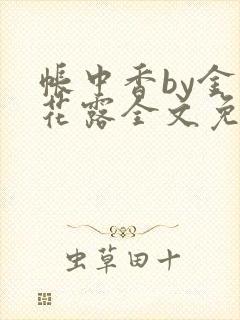 帐中香by金
花露全文免
虫草田十